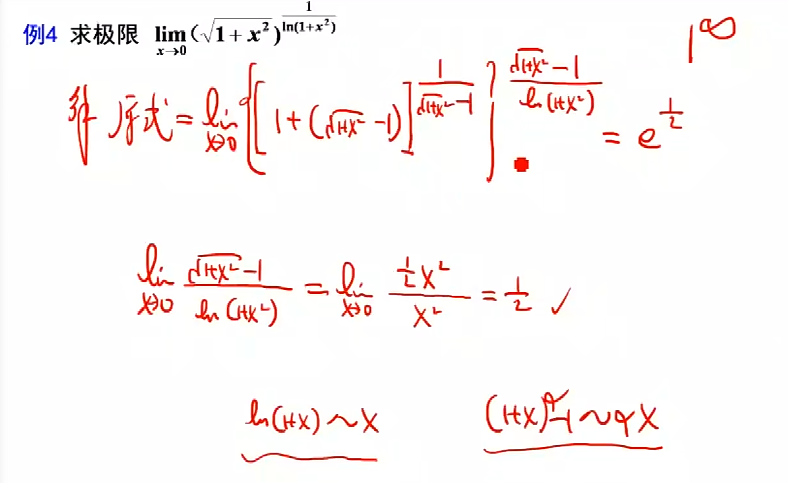 例4 求极限 lim_{x→0} (√(1+x²))^{1/ln(1+x²)}
1^∞
解 原式 = lim_{x→0} {[1+(√(1+x²) -1)]^{1/(√(1+x²) -1)}}^{(√(1+x²) -1)/ln(1+x²)} = e^{1/2}
lim_{x→0} (√(1+x²) -1)/ln(1+x²) = lim_{x→0} (½x²)/x² = ½ ✓
ln(1+x) ~ x
(1+x)^α -1 ~ αx